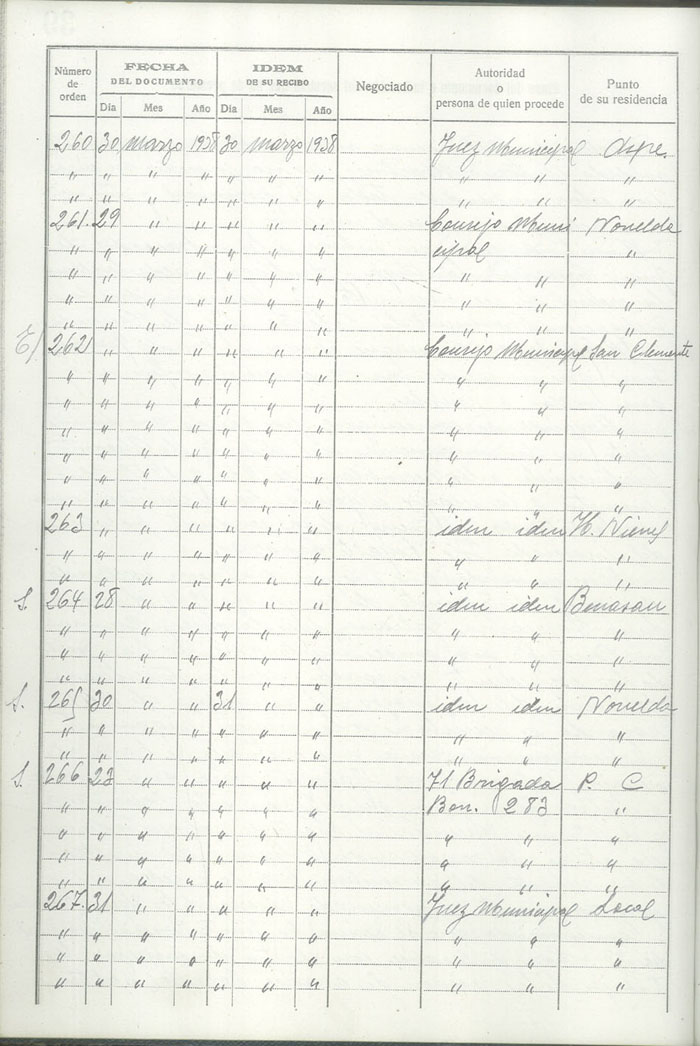 Número de orden
FECHA DEL DOCUMENTO
IDEM DE SU RECIBO
Negociado
Autoridad o persona de quien procede
Punto de su residencia
Dia Mes Año Dia Mes Año
260 30 Marzo 1938 30 Marzo 1938 Juez Municipal Aspe.
" " " " " " " " " "
" " " " " " " " " "
261. 29 " " " " " Consejo Muni Novelda
" " " " " " " cipal "
" " " " " " " " " "
" " " " " " " " " "
" " " " " " " " " "
262 " " " " " " Consejo Municipal San Clemente
" " " " " " " " " "
" " " " " " " " " "
" " " " " " " " " "
" " " " " " " " " "
" " " " " " " " " "
" " " " " " " " " "
263 " " " " " " idem idem H. Nieves
" " " " " " " " " "
" " " " " " " " " "
S. 264 28 " " " " " idem idem Benasau
" " " " " " " " " "
" " " " " " " " " "
" " " " " " " " " "
S. 265 30 " " 31 " " idem idem Novelda
" " " " " " " " " "
" " " " " " " " " "
S. 266 23 " " " " " 71 Brigada P. C
" " " " " " " Bon. 283 "
" " " " " " " " " "
" " " " " " " " " "
" " " " " " " " " "
267. 31 " " " " " Juez Municipal Local
" " " " " " " " " "
" " " " " " " " " "
" " " " " " " " " "